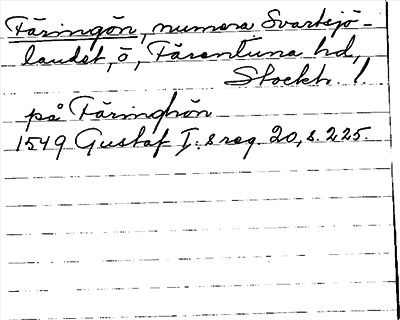 Färingön, numera Svartsjö-
landet, ö, Färentuna hd,
Stockh. l.
på Färinghön
1549 Gustaf I:s reg. 20, s. 225.